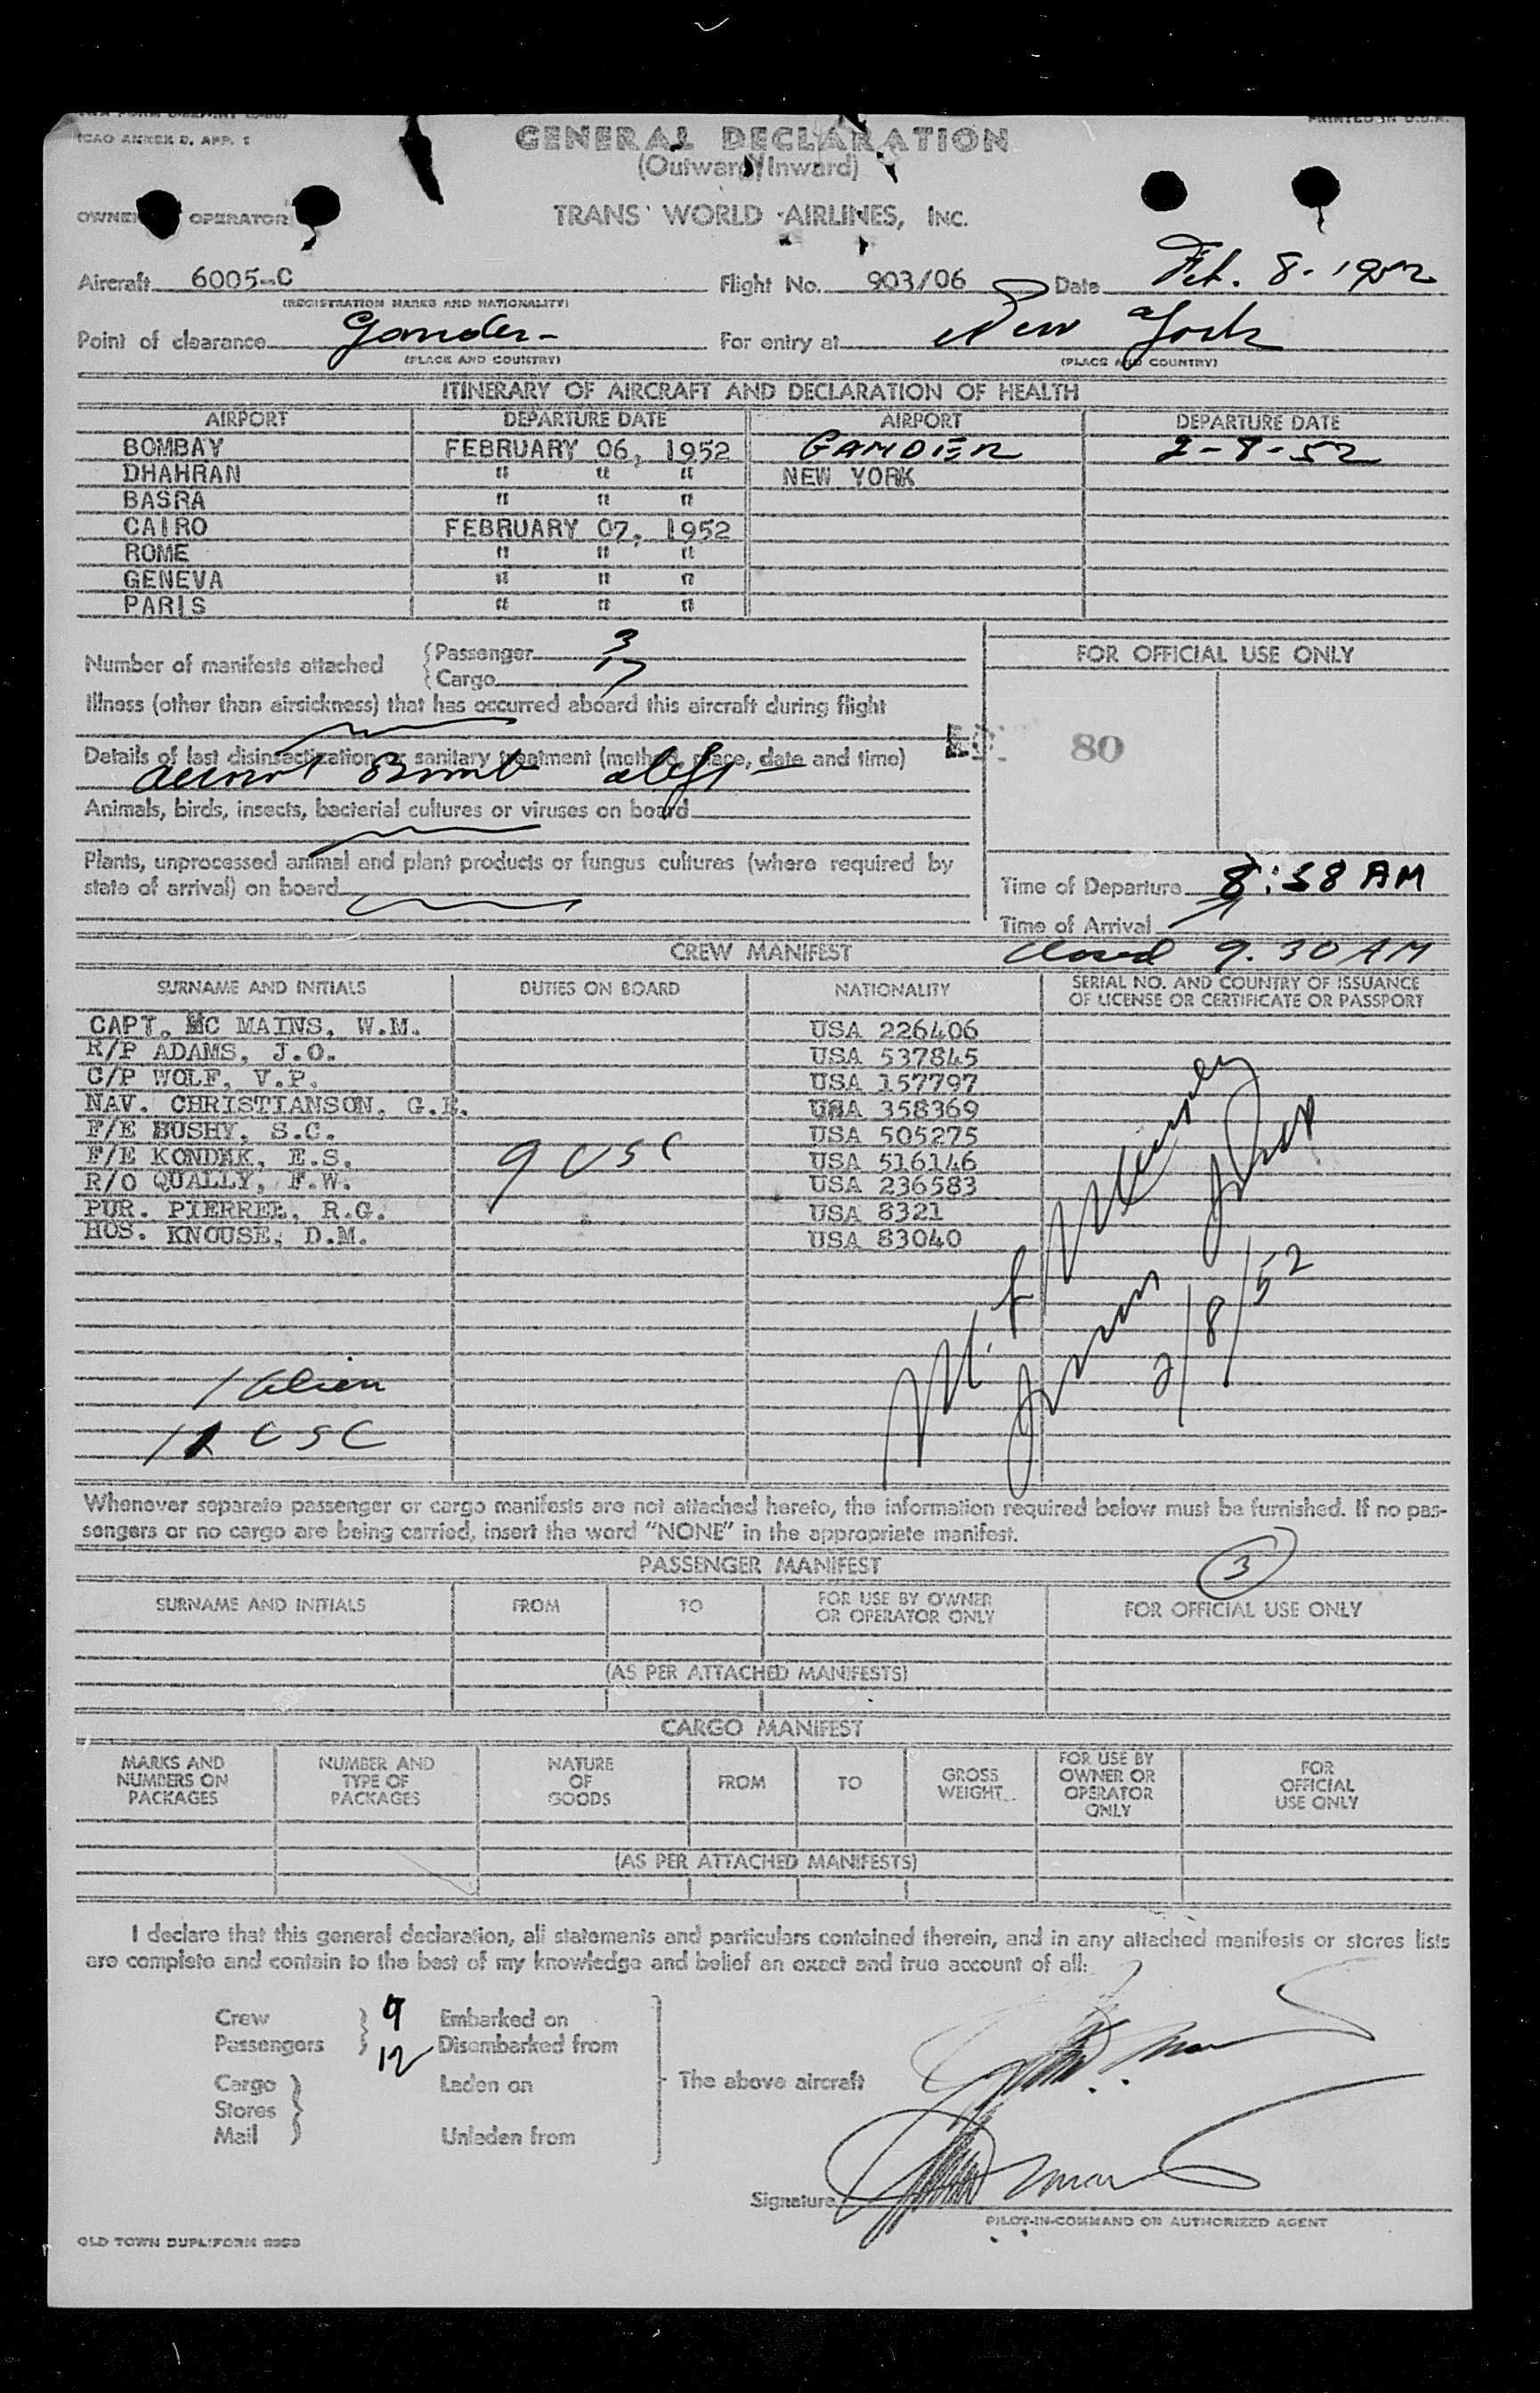 ICAO ANNEX 9, APP. 1
PRINTED IN U.S.A.
GENERAL DECLARATION
(Outward/Inward)
OWNER OPERATOR
TRANS WORLD AIRLINES, INC.
Aircraft 6005-C Flight No. 903/06 Date Feb. 8-1952
(REGISTRATION MARKS AND NATIONALITY)
Point of clearance Gander- For entry at New York
(PLACE AND COUNTRY) (PLACE AND COUNTRY)
ITINERARY OF AIRCRAFT AND DECLARATION OF HEALTH
AIRPORT DEPARTURE DATE AIRPORT DEPARTURE DATE
BOMBAY FEBRUARY 06, 1952 GANDER 2-8-52
DHAHRAN " " " NEW YORK
BASRA " " "
CAIRO FEBRUARY 07, 1952
ROME " " "
GENEVA " " "
PARIS " " "
Number of manifests attached
Passenger 3
Cargo 17
FOR OFFICIAL USE ONLY
Illness (other than airsickness) that has occurred aboard this aircraft during flight
80
Details of last disinsectization or sanitary treatment (method, place, date and time)
Bomb
Animals, birds, insects, bacterial cultures or viruses on board
Plants, unprocessed animal and plant products or fungus cultures (where required by
state of arrival) on board
Time of Departure 8:58 AM
Time of Arrival
closed 9.30 AM
CREW MANIFEST
SURNAME AND INITIALS DUTIES ON BOARD NATIONALITY SERIAL NO. AND COUNTRY OF ISSUANCE OF LICENSE OR CERTIFICATE OR PASSPORT
CAPT. MC MAINS, W.M. USA 226406
R/P ADAMS, J.O. USA 537845
C/P WOLF, V.P. USA 157797
NAV. CHRISTIANSON, G.E. USA 358369
F/E BUSHY, S.C. USA 505275
F/E KONDEK, E.S. USA 516146
R/O QUALLY, F.W. USA 236583
PUR. PIERREL, R.G. USA 8321
HOS. KNOUSE, D.M. USA 83040
9 USC
2/8/52
1 Alien
11 USC
Whenever separate passenger or cargo manifests are not attached hereto, the information required below must be furnished. If no pas-
sengers or no cargo are being carried, insert the word "NONE" in the appropriate manifest.
PASSENGER MANIFEST
3
SURNAME AND INITIALS FROM TO FOR USE BY OWNER OR OPERATOR ONLY FOR OFFICIAL USE ONLY
(AS PER ATTACHED MANIFESTS)
CARGO MANIFEST
MARKS AND NUMBERS ON PACKAGES NUMBER AND TYPE OF PACKAGES NATURE OF GOODS FROM TO GROSS WEIGHT FOR USE BY OWNER OR OPERATOR ONLY FOR OFFICIAL USE ONLY
(AS PER ATTACHED MANIFESTS)
I declare that this general declaration, all statements and particulars contained therein, and in any attached manifests or stores lists
are complete and contain to the best of my knowledge and belief an exact and true account of all:
Crew 9 Embarked on
Passengers 12 Disembarked from
Cargo Laden on The above aircraft
Stores
Mail Unladen from
Signature
PILOT-IN-COMMAND OR AUTHORIZED AGENT
OLD TOWN DUPLIFORM